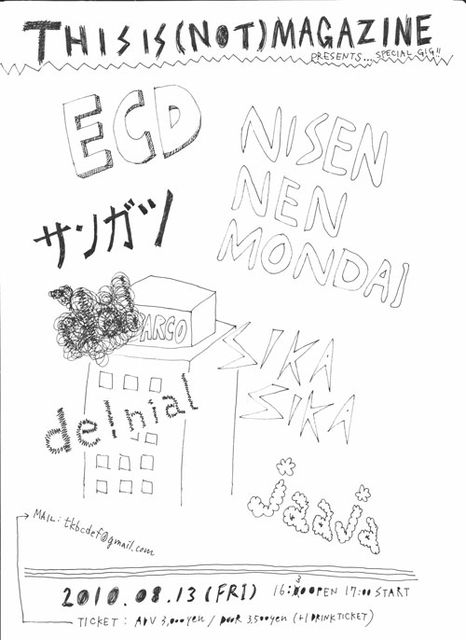 THIS IS (NOT) MAGAZINE
PRESENTS... SPECIAL GIG!!
ECD
NISEN
NEN
MONDAI
サンガツ
PARCO
SIKA
SIKA
de!nial
jaaja
MAIL: tkbcdef@gmail.com
2010.08.13 (FRI) 16:30 OPEN 17:00 START
TICKET: ADV 3,000yen / DOOR 3,500yen (+1 DRINK TICKET)